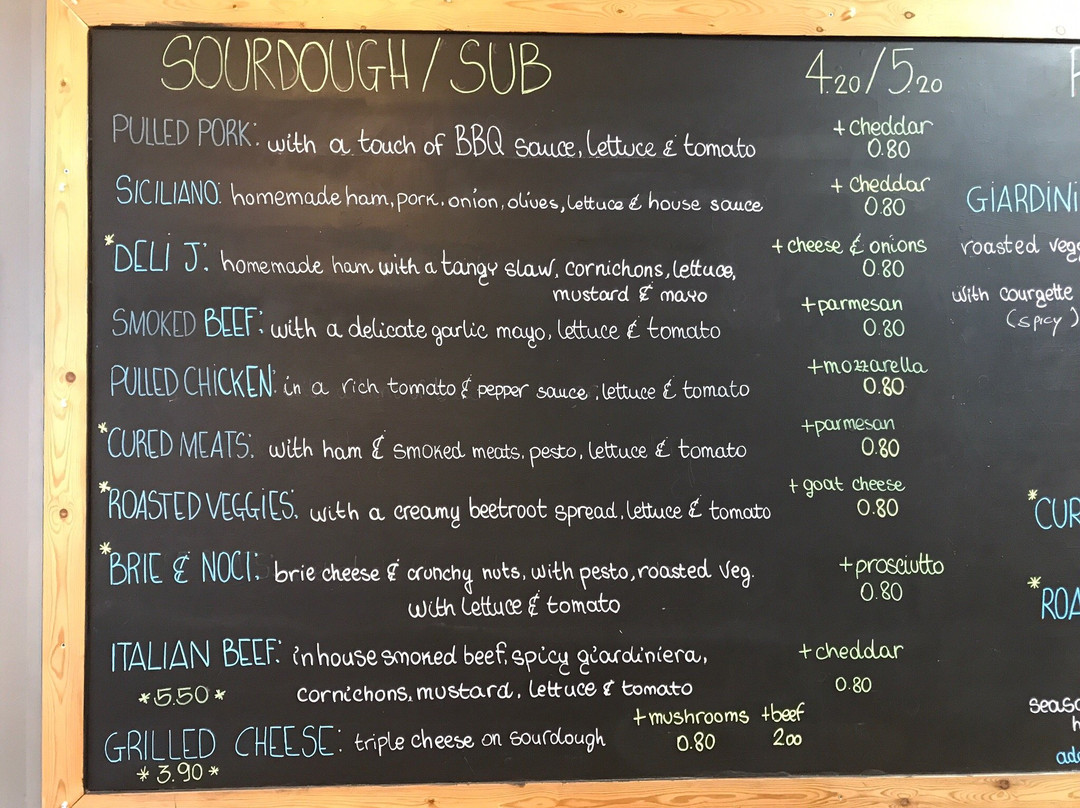 SOURDOUGH / SUB 4.20/5.20
PULLED PORK: with a touch of BBQ sauce, lettuce & tomato
+ cheddar
0.80
SICILIANO: homemade ham, pork, onion, olives, lettuce & house sauce
+ cheddar
0.80
*DELI J: homemade ham with a tangy slaw, cornichons, lettuce,
mustard & mayo
+ cheese & onions
0.80
SMOKED BEEF: with a delicate garlic mayo, lettuce & tomato
+ parmesan
0.80
PULLED CHICKEN: in a rich tomato & pepper sauce, lettuce & tomato
+ mozzarella
0.80
*CURED MEATS: with ham & smoked meats, pesto, lettuce & tomato
+ parmesan
0.80
*ROASTED VEGGIES: with a creamy beetroot spread, lettuce & tomato
+ goat cheese
0.80
*BRIE & NOCI: brie cheese & crunchy nuts, with pesto, roasted veg.
with lettuce & tomato
+ prosciutto
0.80
ITALIAN BEEF: inhouse smoked beef, spicy giardiniera,
*5.50* cornichons, mustard, lettuce & tomato
+ cheddar
0.80
GRILLED CHEESE: triple cheese on sourdough
*3.90*
+ mushrooms +beef
0.80 2.00
GIARDINI
roasted veg
with courgette
(spicy)
*CUR
*ROA
seaso
h